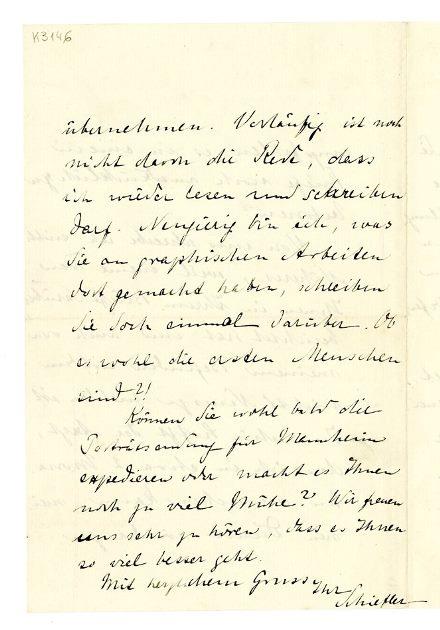 K3146
übernehmen. Vorläufig ist noch
nicht davon die Rede, dass
ich wieder lesen und schreiben
darf. Neugierig bin ich, was
Sie an graphischen Arbeiten
dort gemacht haben, schreiben
Sie doch einmal darüber. Ob
es wohl die ersten Menschen
sind?!
Können Sie wohl bald die
Porträtsendung für Mannheim
expedieren oder macht es Ihnen
noch zu viel Mühe? Wir freuen
uns sehr zu hören, dass es Ihnen
so viel besser geht.
Mit herzlichem Gruss
Ihr
Schiefler